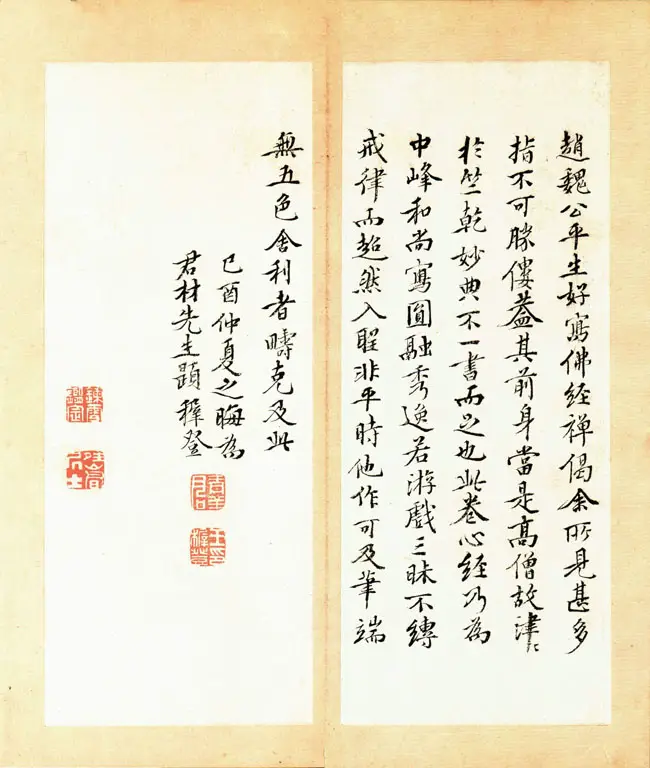 趙魏公平生好寫佛經禅偈余所見甚多
指不可勝僂葢其前身當是髙僧故津〻
於竺乾妙典不一書而足也此卷心經乃為
中峰和尚寫圓融秀逸若游戲三昧不縛
戒律而超然入聖非平時他作可及筆端
無五色舍利者疇克及此
己酉仲夏之晦為
君材先生題穉登
王印穉登